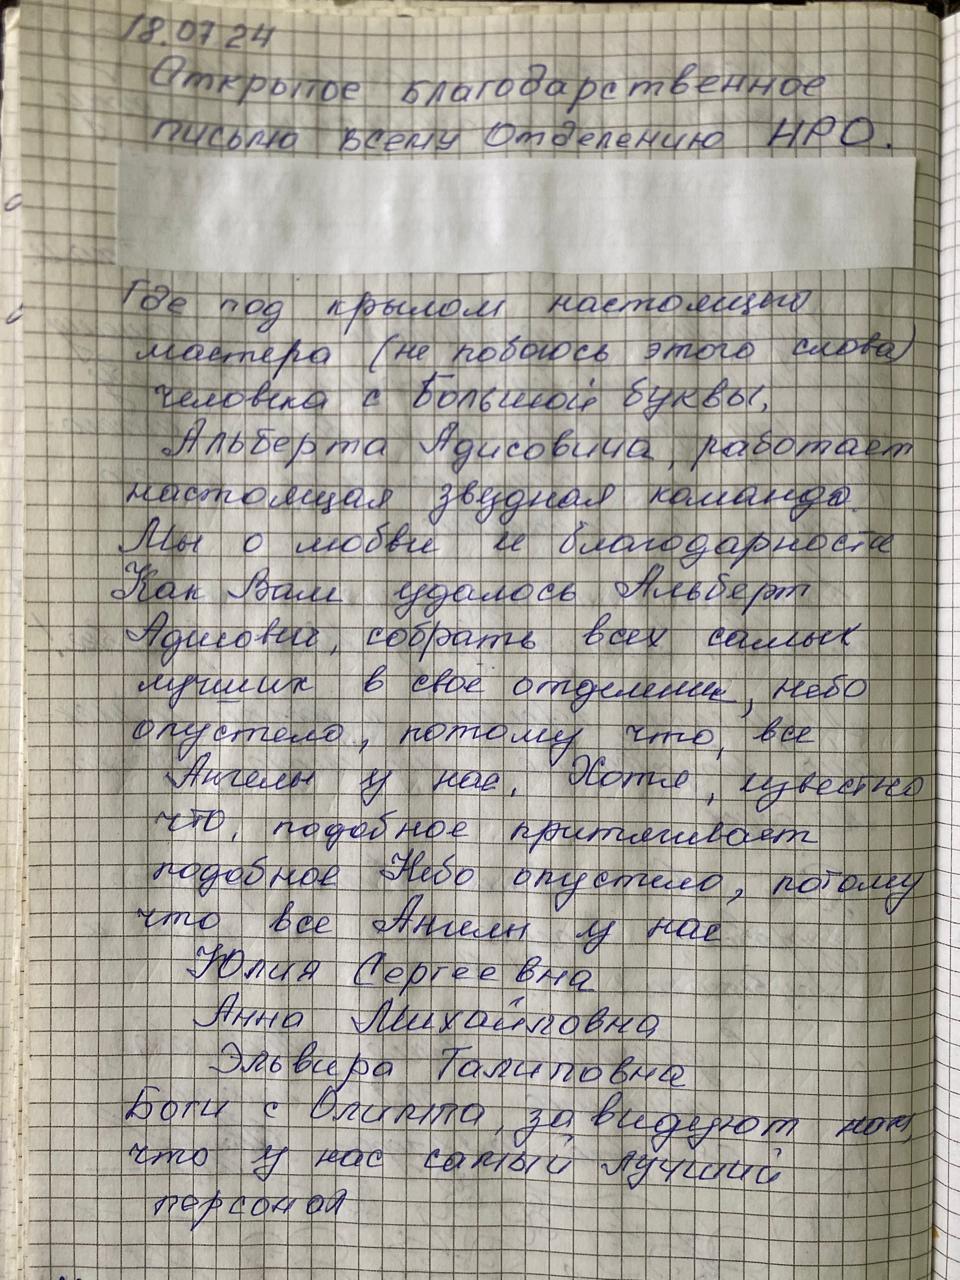 18.07.24
Открытое благодарственное
письмо всему Отделению НРО.
Где под крылом настоящего
мастера (не побоюсь этого слова)
человека с Большой буквы,
Альберта Адисовича, работает
настоящая звездная команда.
Мы о любви и благодарности
Как Вам удалось Альберт
Адисович, собрать всех самых
лучших в своё отделение, небо
опустело, потому что, все
Ангелы у нас. Хотя, известно
что, подобное притягивает
подобное Небо опустело, потому
что все Ангелы у нас
Юлия Сергеевна
Анна Михайловна
Эльвира Талиповна
Боги с Олимпа, завидуют нам,
что у нас самый лучший
персонал